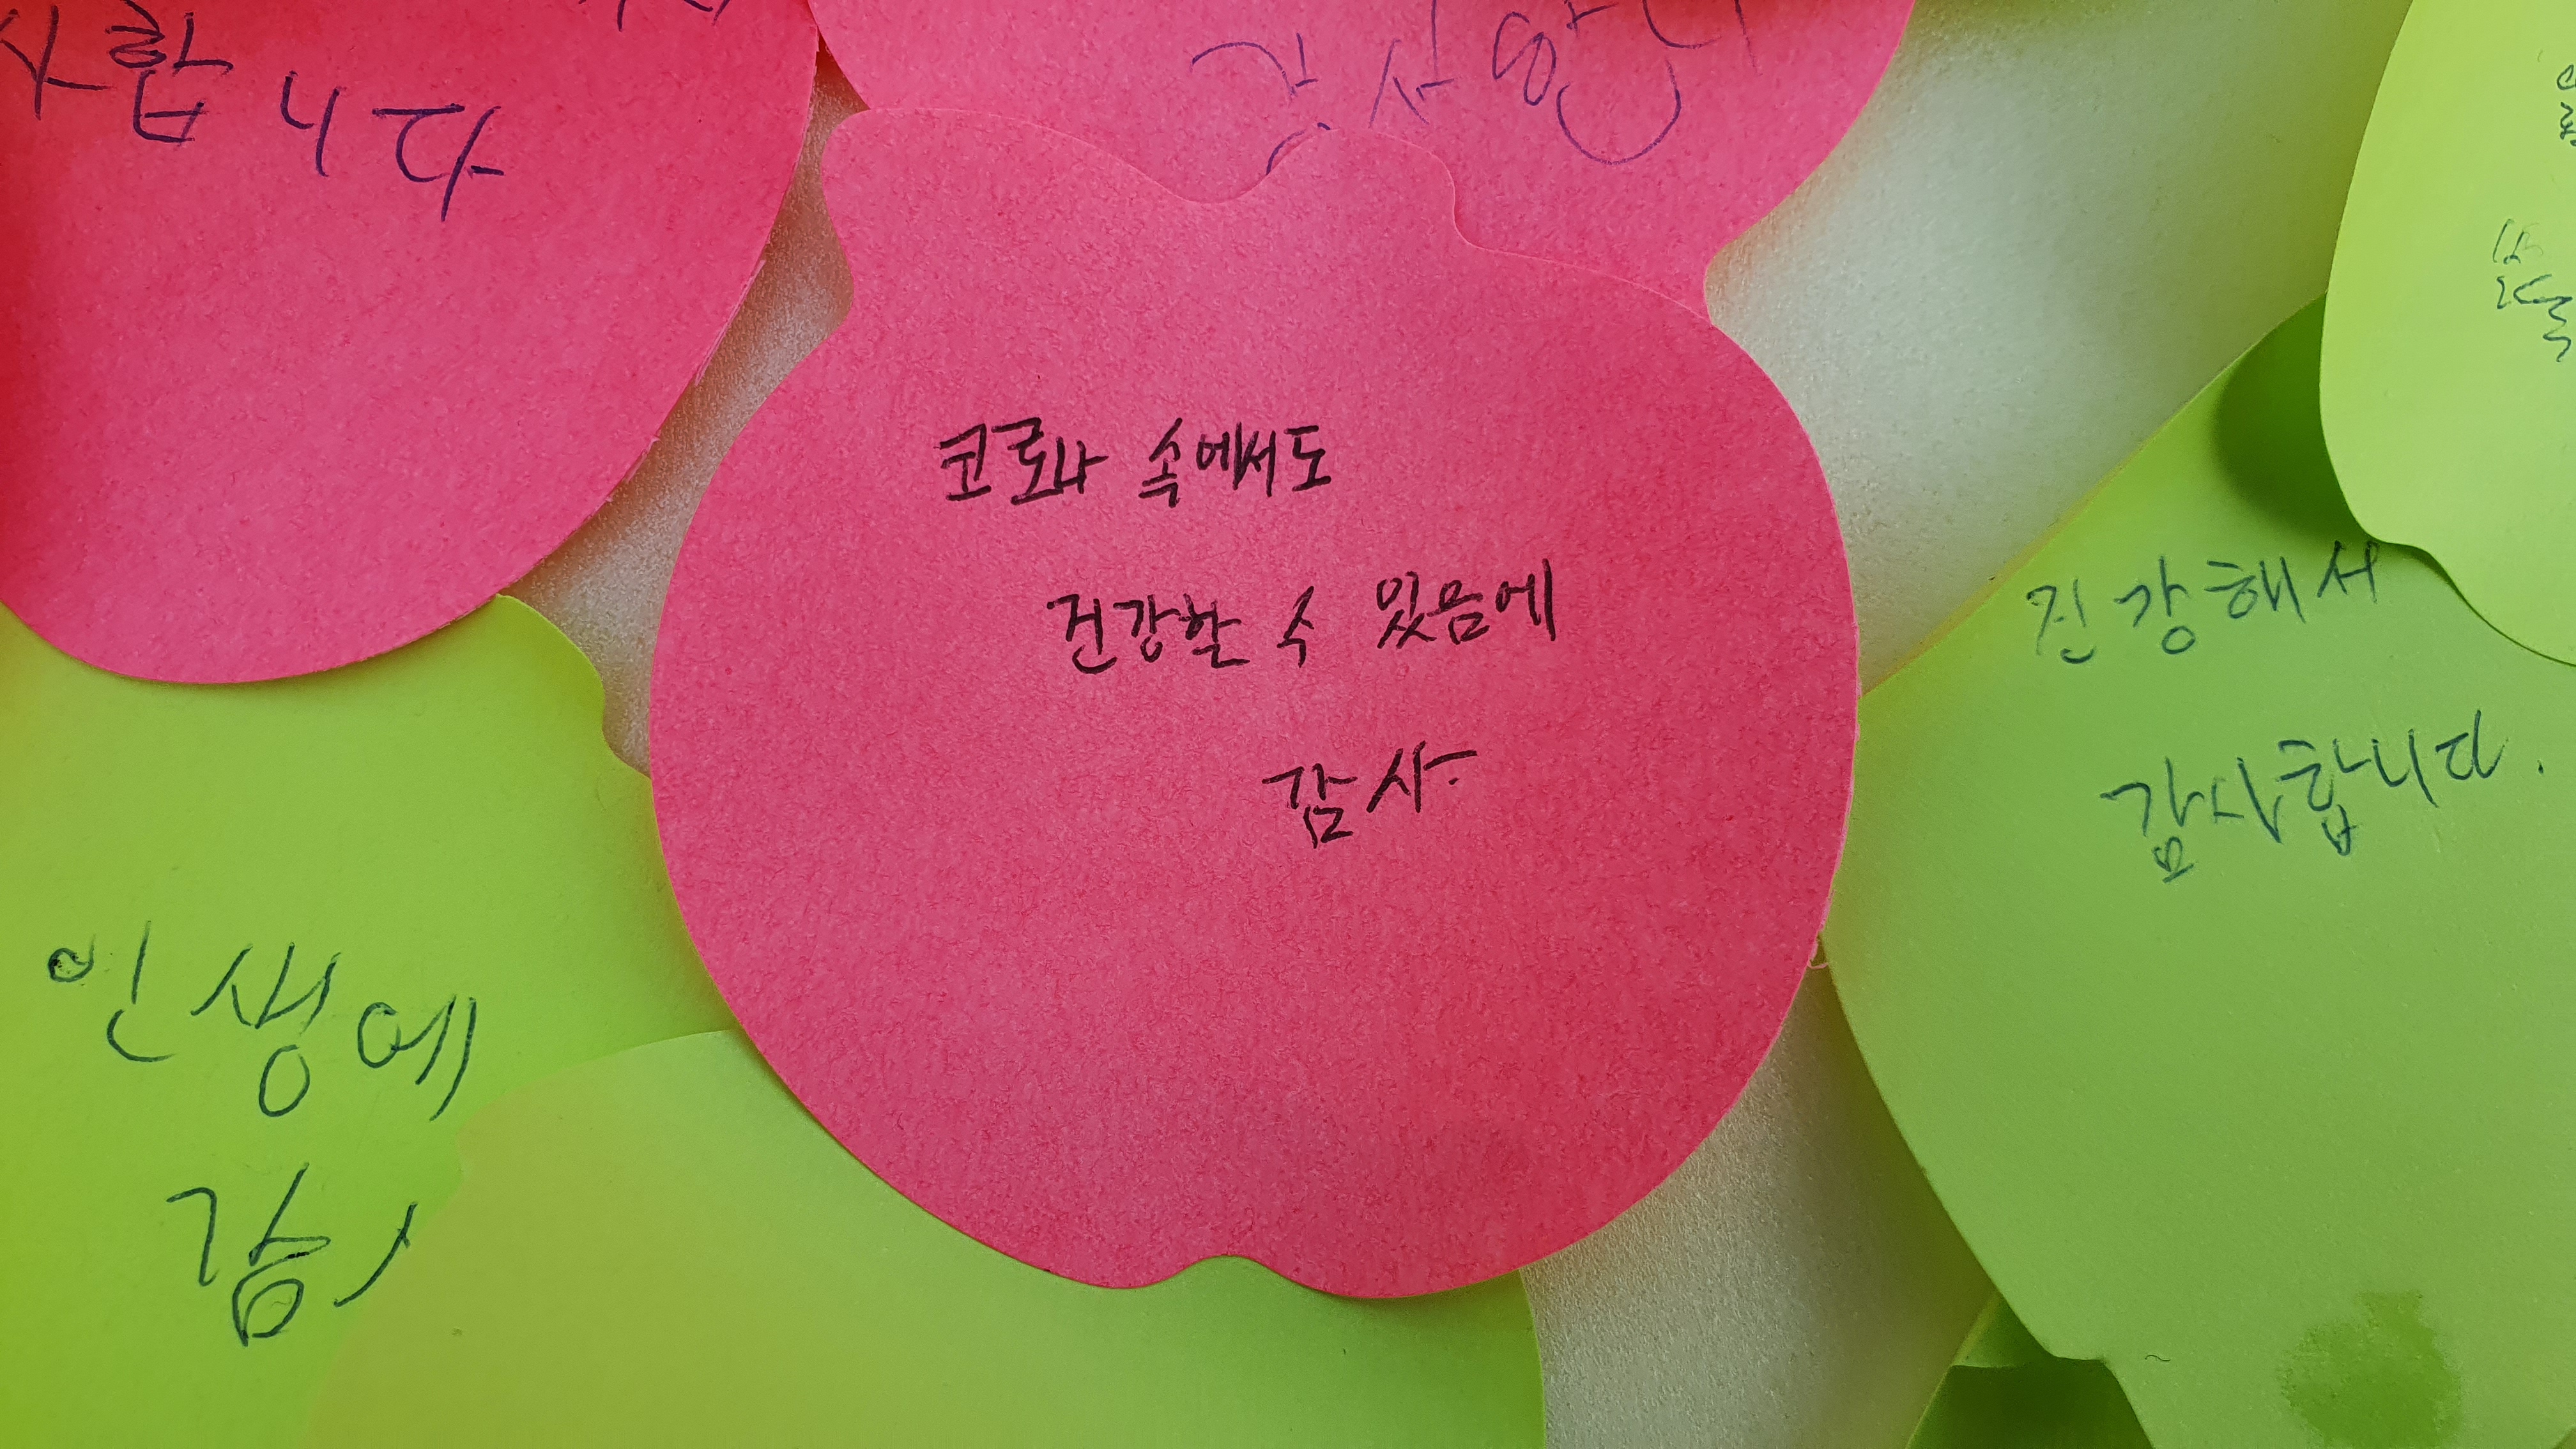 사랍니다
코로나 속에서도
건강할 수 있음에
감사.
건강해서
감사합니다.
인생에
감